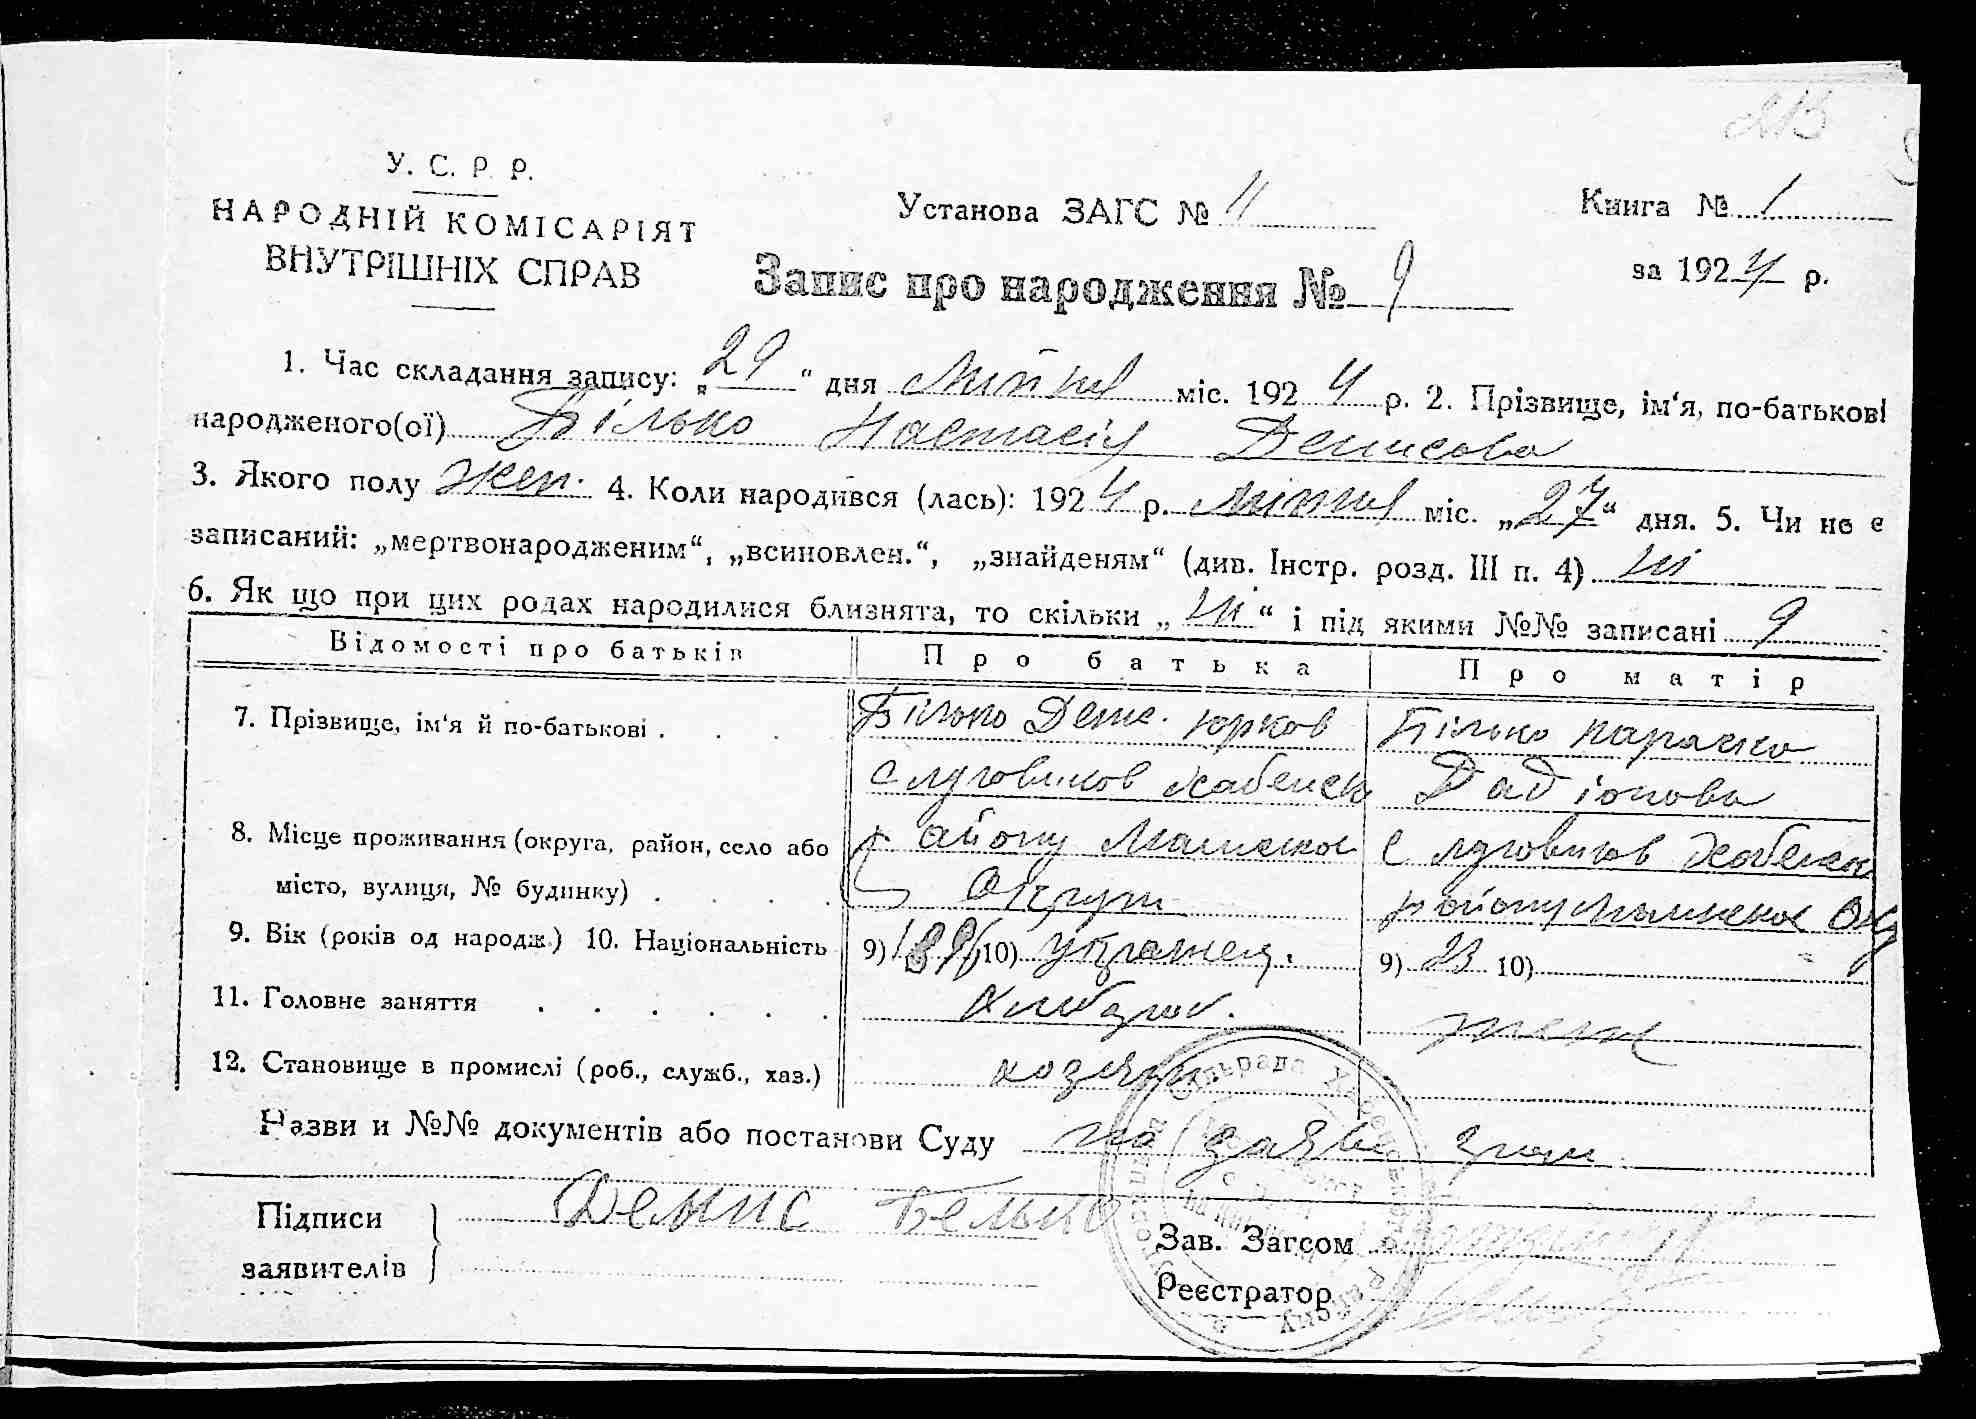 213
У. С. Р. Р.
НАРОДНІЙ КОМІСАРІЯТ
ВНУТРІШНІХ СПРАВ
Установа ЗАГС № 11
Книга № 1
за 1924 р.
Запис про народження № 9
1. Час складання запису: „29“ дня Липня міс. 1924 р. 2. Прізвище, ім‘я, по-батькові
народженого(ої) Білько Настасія Денисова
3. Якого полу жен. 4. Коли народився (лась): 1924 р. Липня міс. „27“ дня. 5. Чи не є
записаний: „мертвонародженим“, „всиновлен.“, „знайденям“ (див. Інстр. розд. III п. 4) ні
6. Як що при цих родах народилися близнята, то скільки „ні“ і під якими №№ записані 9
Відомості про батьків Про батька Про матір
7. Прізвище, ім‘я й по-батькові . Білько Денис. Юрков Білько Параска
с Луговиков Хабенськ Радіонова
8. Місце проживання (округа, район, село або району Малинської с Луговиков Хабенськ
місто, вулиця, № будинку) . Округи району Малинської Окр
9. Вік (років од народж.) 10. Національність 9) 10) украінец. 9) 23 10)
11. Головне заняття . . . . . . Хлібороб. теж
12. Становище в промислі (роб., служб., хаз.) хозяїн
Назви и №№ документів або постанови Суду по заяві
Підписи
заявителів
Денис Белько
Зав. Загсом
Реєстратор
Сільрада Хабенського Району